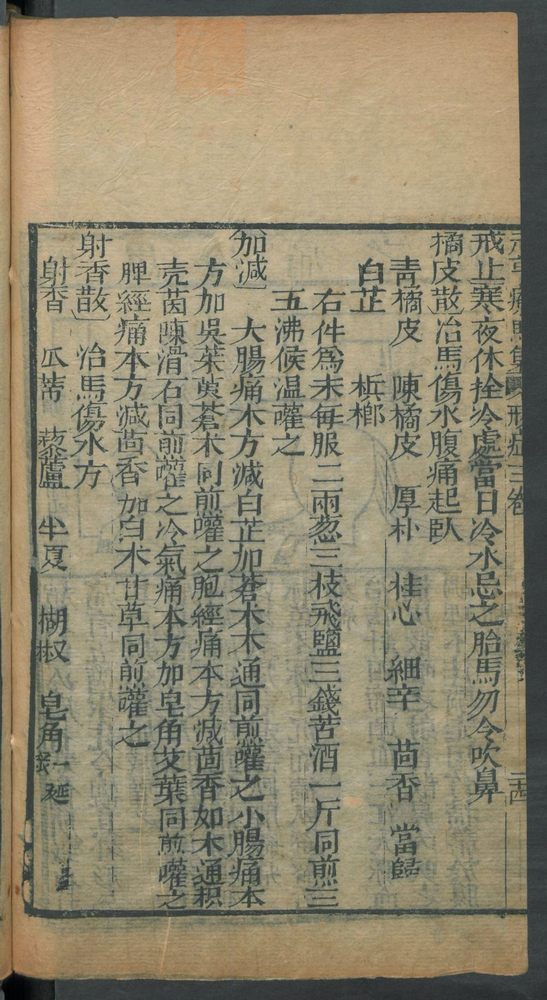 元亨療馬集 形症三卷 二十四
戒止寒夜休拴冷處當日冷水忌之胎馬勿令吹鼻
橘皮散治馬傷水腹痛起臥
青橘皮 陳橘皮 厚朴 桂心 細辛 茴香 當歸
白芷 梹榔
右件為末每服二兩葱三枝飛鹽三錢苦酒一斤同煎三
五沸候温嚾之
加減 大腸痛本方減白芷加蒼术木通同煎嚾之小腸痛本
方加吳茱萸蒼术同煎嚾之胞經痛本方減茴香加木通枳
壳茵陳滑石同煎嚾之冷氣痛本方加皂角艾葉同煎嚾之
脾經痛本方減茴香加白术甘草同煎嚾之
射香散 治馬傷水方
射香 瓜蒂 藜蘆 半夏 胡椒 皂角